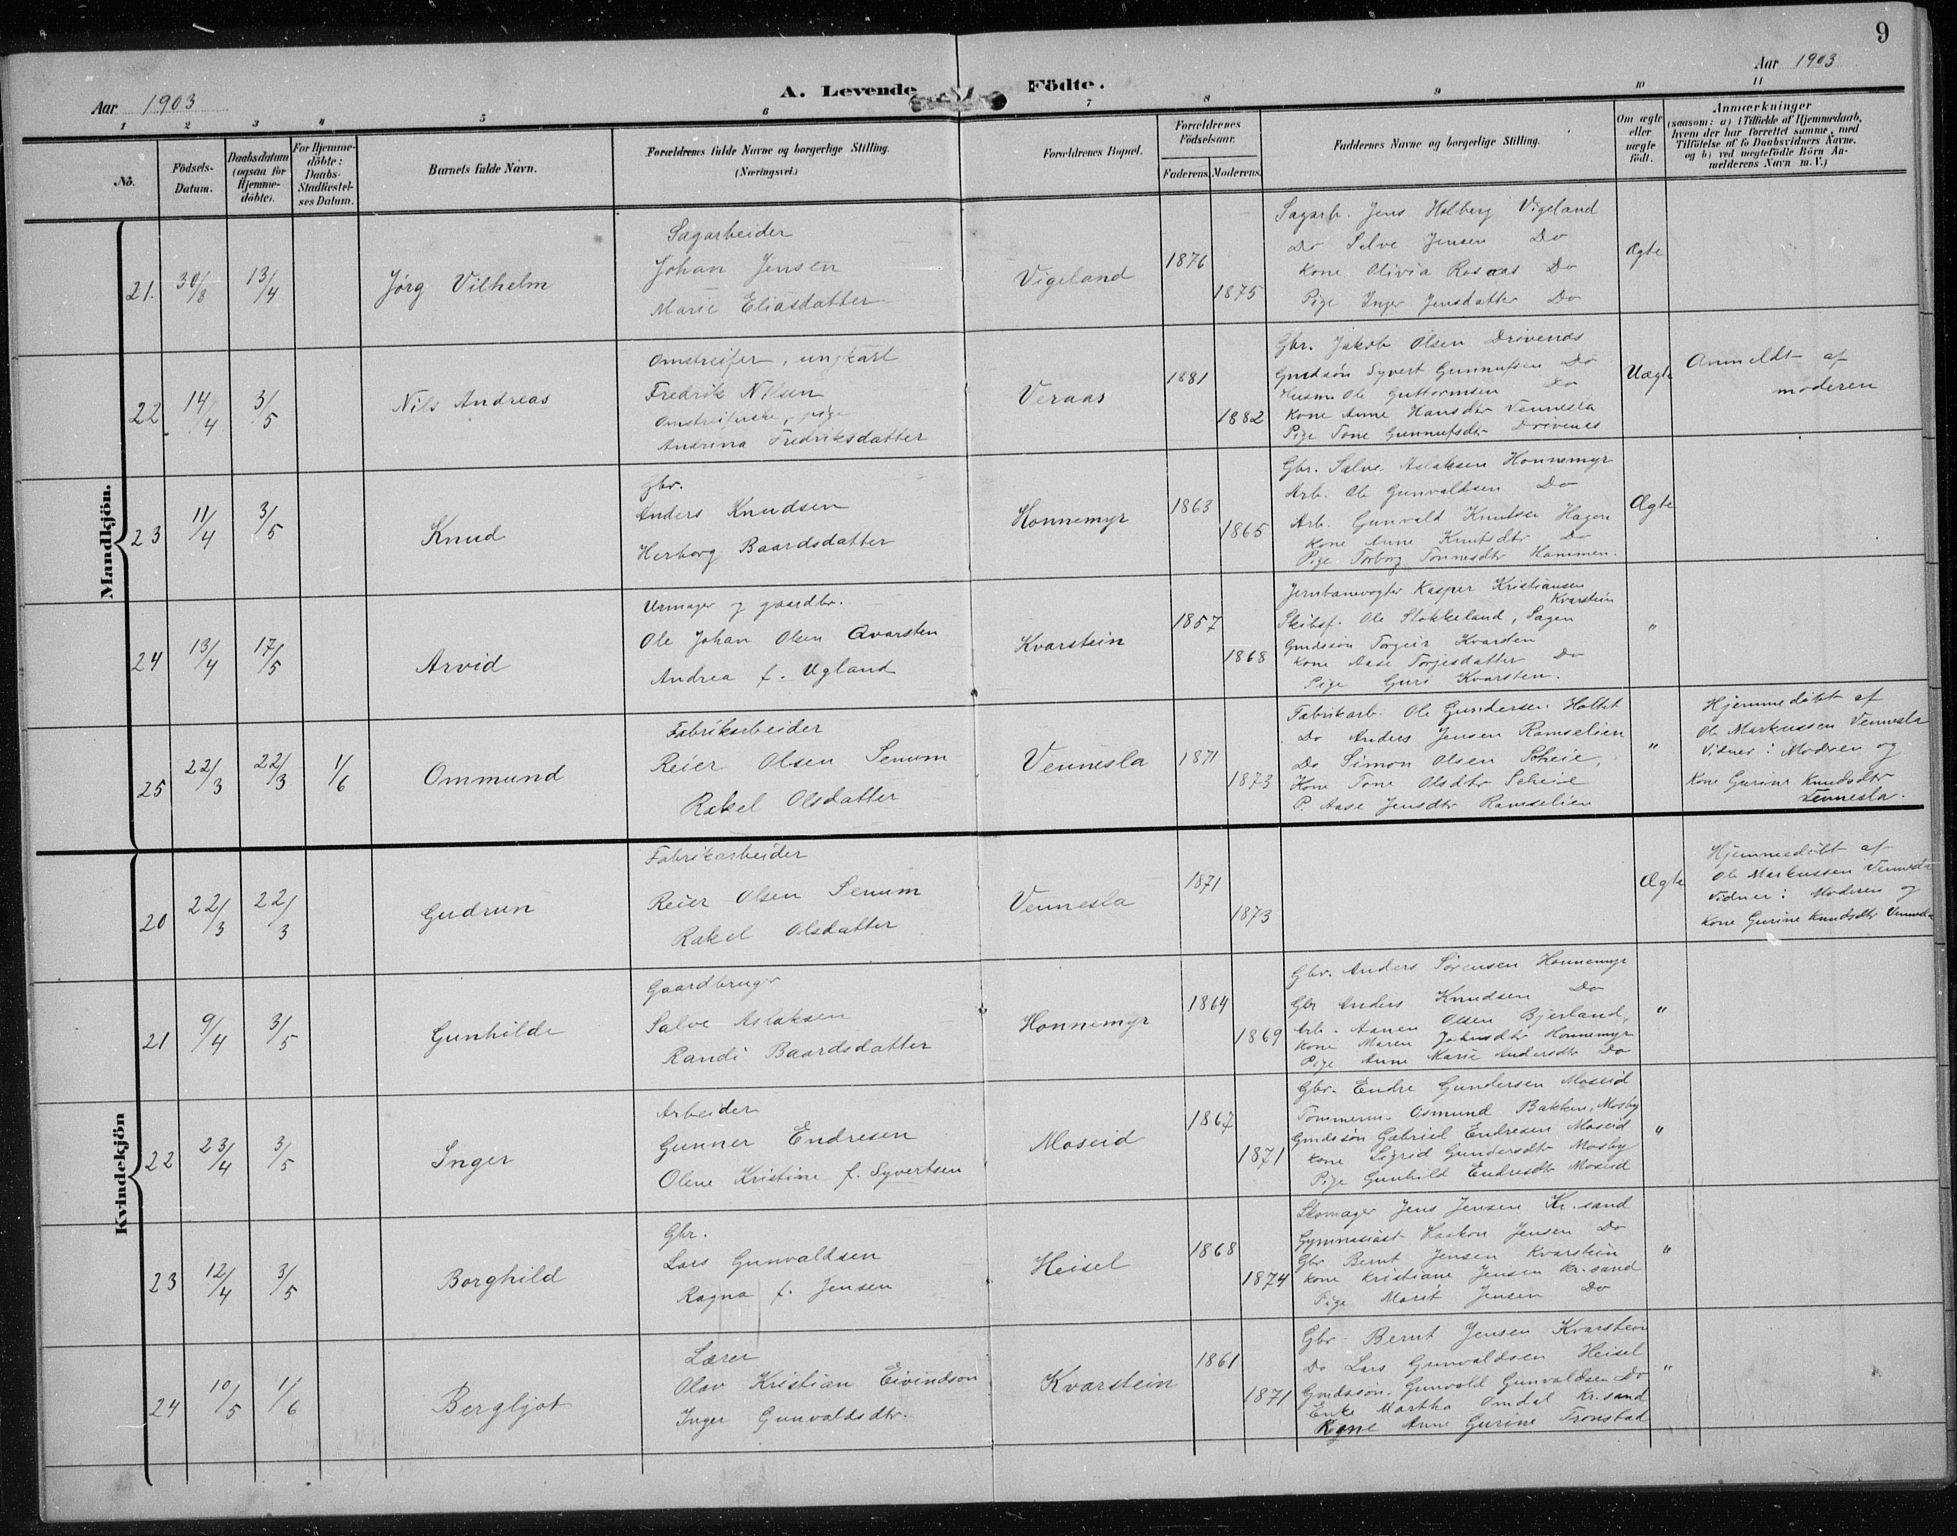 9
Aar 1903
A. Levende Födte.
Aar 1903
1 2 3 4 5 6 7 8 9 10 11
No.
Födsels-Datum.
Daabsdatum (ogsaa for Hjemme-döbte).
For Hjemme-döbte: Daabs-Stadfæstel-ses Datum.
Barnets fulde Navn.
Forældrenes fulde Navne og borgerlige Stilling.
(Næringsvei.)
Forældrenes Bopæl.
Forældrenes Födselsaar.
Faderens. Moderens.
Faddernes Navne og borgerlige Stilling.
Om ægte eller uægte födt.
Anmærkninger
(saasom: a) i Tilfælde af Hjemmedaab,
hvem der har forrettet samme, med
Tilföielse af to Daabsvidners Navne.
og b) ved uægtefödte Börn An-
melderens Navn m. V.)
Mandkjön.
21. 30/8 13/4
Jørg Vilhelm
Sagarbeider
Johan Jensen
Marie Eliasdatter
Vigeland
1876
1875
Sagarb. Jens Holberg Vigeland
Do Selve Jensen Do
Kone Olivia Rosaas Do
Pige Inger Jensdatter Do
Ægte
22 14/4 3/5
Nils Andreas
Omstreifer, ungkarl
Fredrik Nilsen
Omstreiferske, pige
Andrina Fredriksdatter
Veraas
1881
1882
Gbr. Jakob Olsen Drivenes
Grdsøn Syvert Gunnufsen Do
Husm Ole Guttormsen Do
Kone Anne Hansdtr Vennesla
Pige Tone Gunnufsdtr Drivenes
Uægte
Anmeldt af
moderen
23 11/4 3/5
Knud
gbr.
Anders Knudsen
Herborg Baardsdatter
Honnemyr
1863
1865
Gbr. Salve Aslaksen Honnemyr
Arb. Ole Gunvaldsen Do
Arb. Gunvald Knutsen Hagen
Kone Anne Knutsdtr Do
Pige Torborg Tønnesdtr Hammen.
Ægte
24 13/4 17/5
Arvid
Urmager og gaardbr.
Ole Johan Olsen Qvarsten
Andrea f. Ugland
Kvarstein
1857
1868
Jernbanevogter Kasper Kristiansen
Kvarstein
Skibsf. Ole Stokkeland, Sagen
Grdssøn Torgeir Kvarsten
Kone Aase Torjesdatter Do
Pige Guri Kvarsten.
"
25 22/3 22/3 1/6
Ommund
Fabrikarbeider
Reier Olsen Senum
Rakel Olsdatter
Vennesla
1871
1873
Fabrikarb. Ole Gundersen Holtet
Do Anders Jensen Ramselien
Do Simon Olsen Scheie,
Kone Tone Olsdtr Scheie
P. Aase Jensdtr Ramselien
"
Hjemmedøbt af
Ole Markussen Vennesla
Vidner: Modren og
Kone Gurine Knudsdtr
Vennesla.
Kvindekjön
20 22/3 22/3
Gudrun
Fabrikarbeider
Reier Olsen Senum
Rakel Olsdatter
Vennesla
1871
1873
Ægte
Hjemmedøbt af
Ole Markussen Vennesla
Vidner: Moderen og
Kone Gurine Knudsdtr Vennesla
21 9/4 3/5
Gunhilde
Gaardbruger
Salve Aslaksen
Randi Baardsdatter
Honnemyr
1864
1869
Gbr. Anders Sørensen Honnemyr
Gbr Anders Knudsen Do
Arb. Aanen Olsen Bjerland,
Kone Maren Johnsdtr Honnemyr
Pige Anne Marie Andersdtr Do
"
22 23/4 3/5
Inger
Arbeider
Gunner Endresen
Olene Kristine f. Syvertsen
Moseid
1867
1871
Gbr. Endre Gundersen Moseid
Tømmerm. Osmund Bakken, Mosby
Grdssøn Gabriel Endresen Moseid
Kone Sigrid Gundersdtr Mosby
Pige Gunhild Endresdtr Moseid
"
23 12/4 3/5
Borghild
Gbr.
Lars Gunvaldsen
Ragna f. Jensen
Heisel
1868
1874
Skomager Jens Jensen Kr.sand
Gymnasiast Haakon Jensen Do
Gbr Bernt Jensen Kvarstein
Kone Kristiane Jensen Kr.sand
Pige Marit Jensen Do
"
24 10/5 1/6
Bergljot
Lærer
Olav Kristian Eivindson
Inger Gunvaldsdtr.
Kvarstein
1861
1871
Gbr. Bernt Jensen Kvarstein
Do Lars Gunvaldsen Heisel
Grdssøn. Gunvald Gunvaldsen Do
Enke Martha Omdal Kr.sand
Kone Anne Gurine Tronstad
"